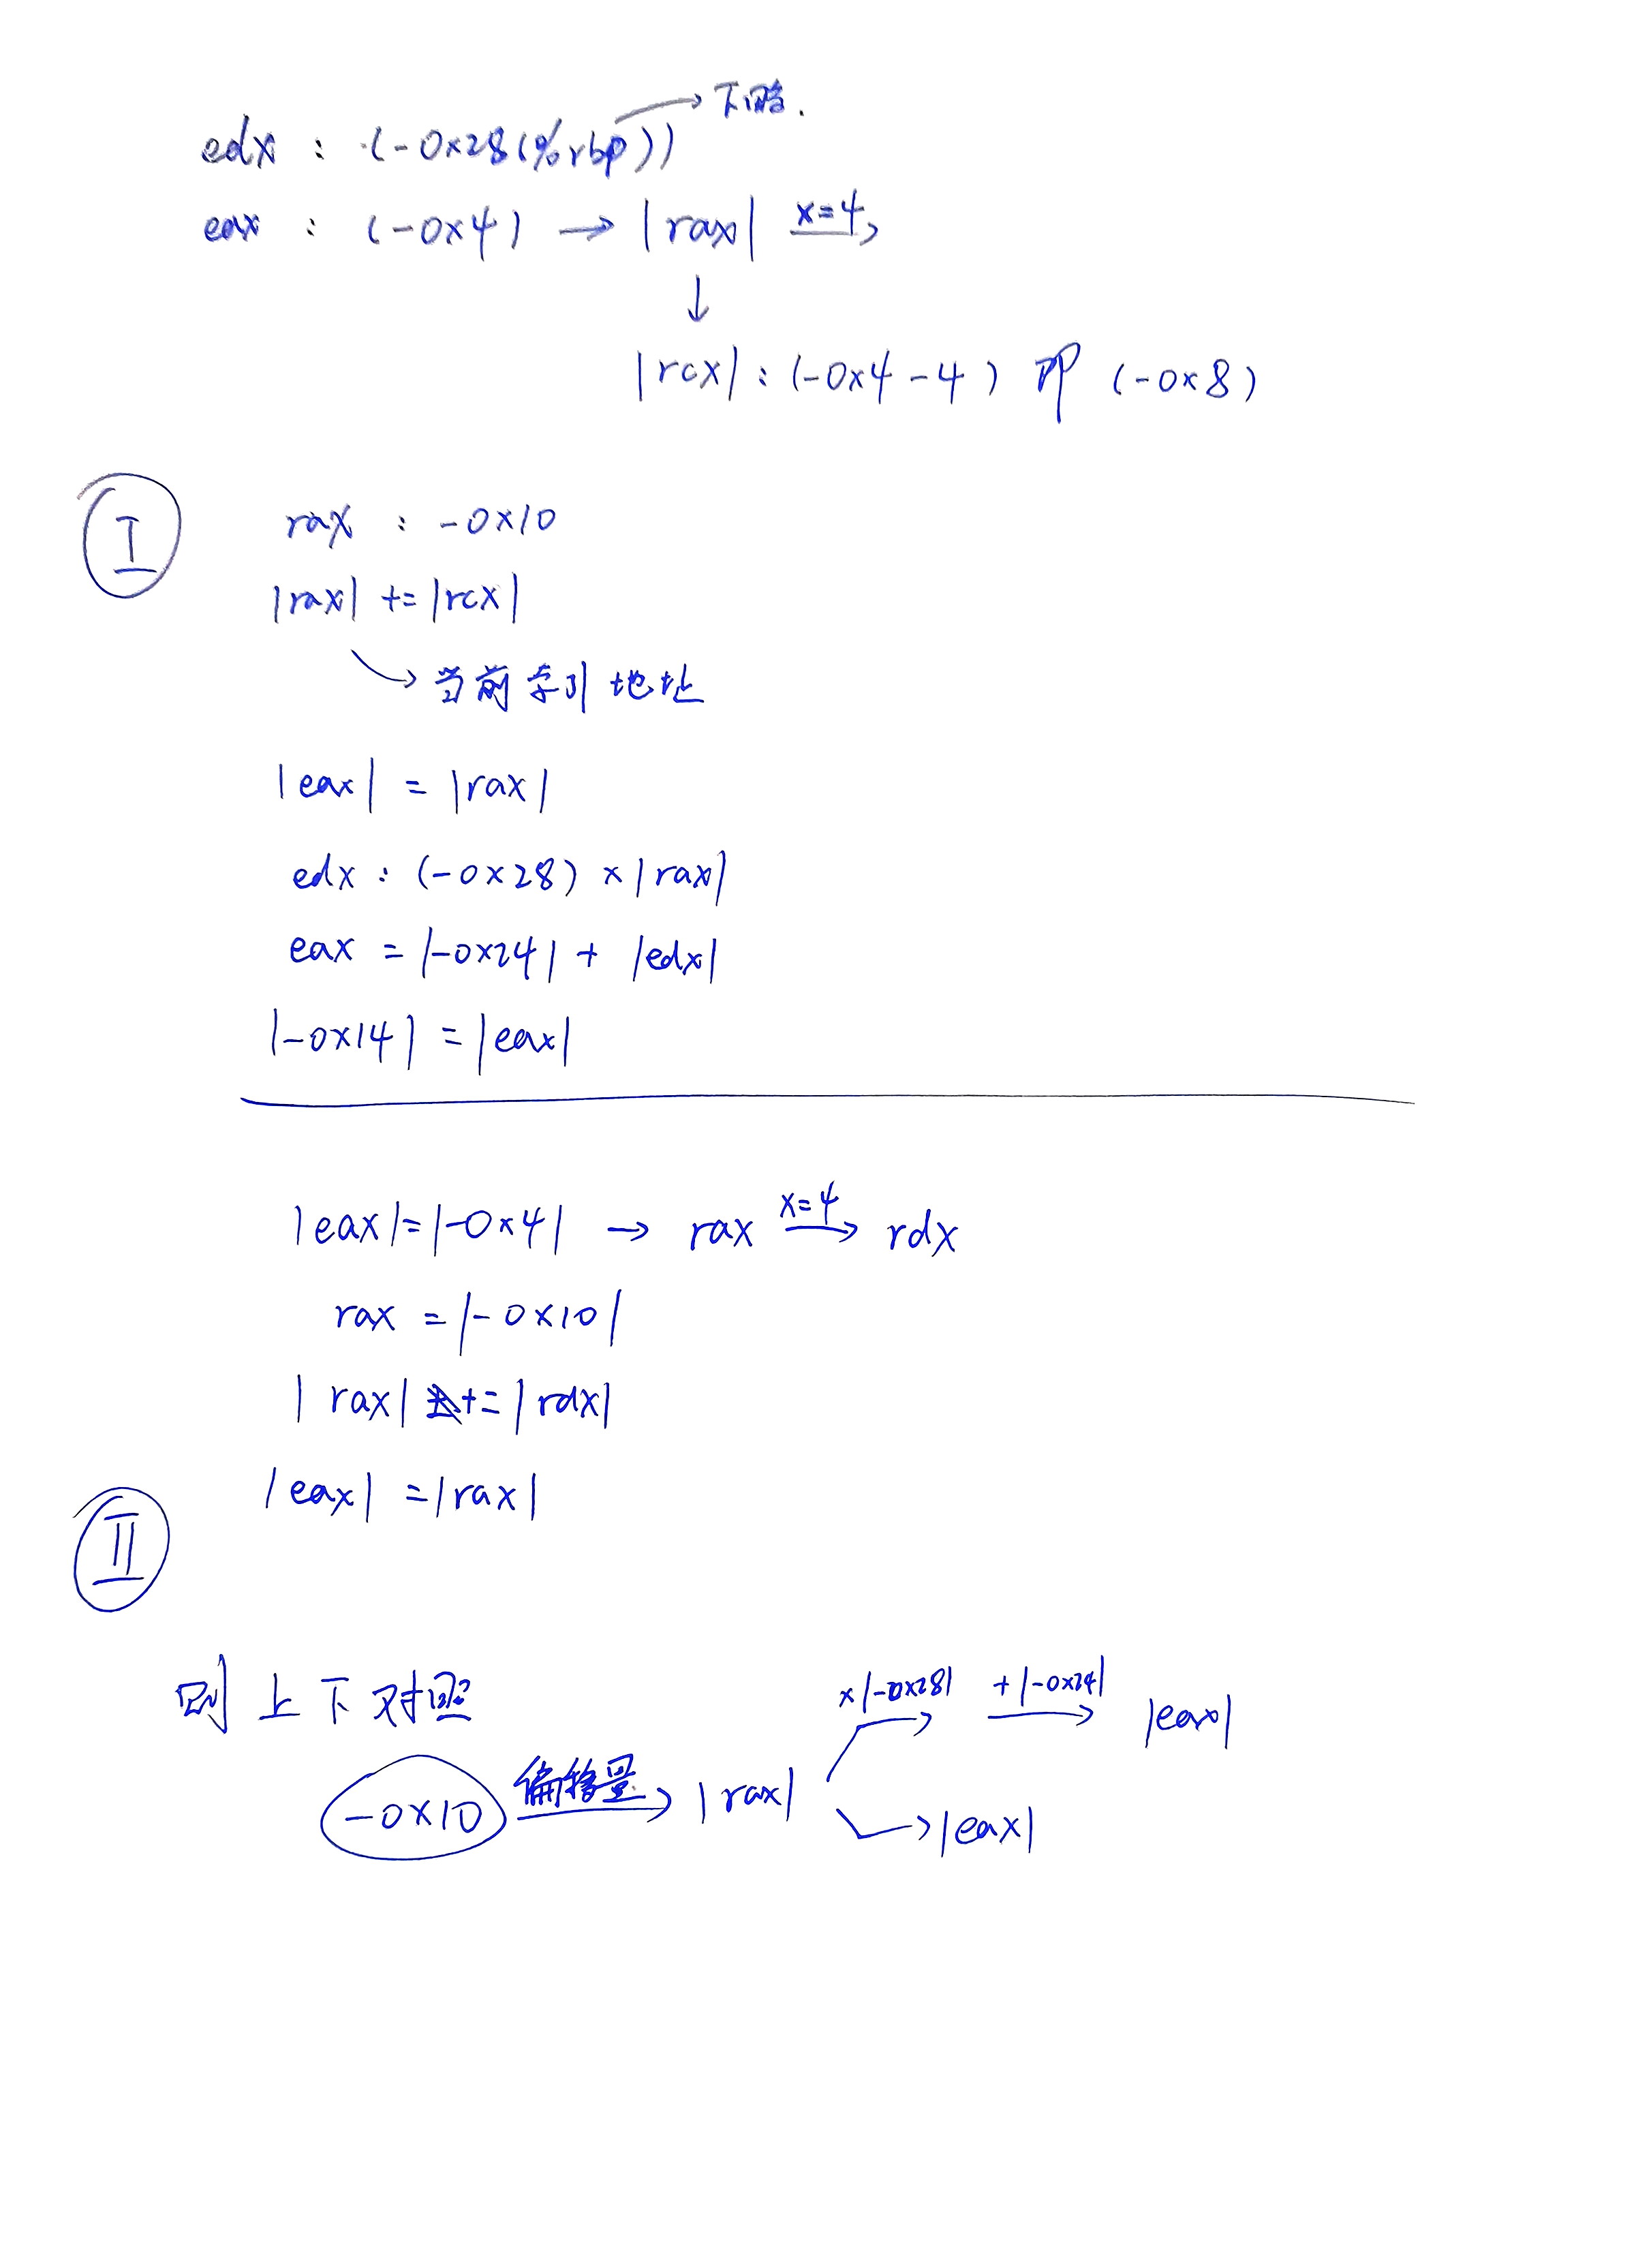 edx : (-0x28(%rbp)) → 下略.
eax : (-0x4) → |rax| x=4→
↓
|rcx| : (-0x4-4) 即 (-0x8)
Ⅰ
rax : -0x10
|rax| += |rcx|
↘ 当前索引地址
|eax| = |rax|
edx : (-0x28) × |rax|
eax = |-0x24| + |edx|
|-0x14| = |eax|
|eax| = |-0x4| → rax x=4→ rdx
rax = |-0x10|
|rax| += |rdx|
|eax| = |rax|
Ⅱ
则上下对照
×|-0x28| → +|-0x24| → |eax|
-0x10 偏移量→ |rax|
↘ |eax|